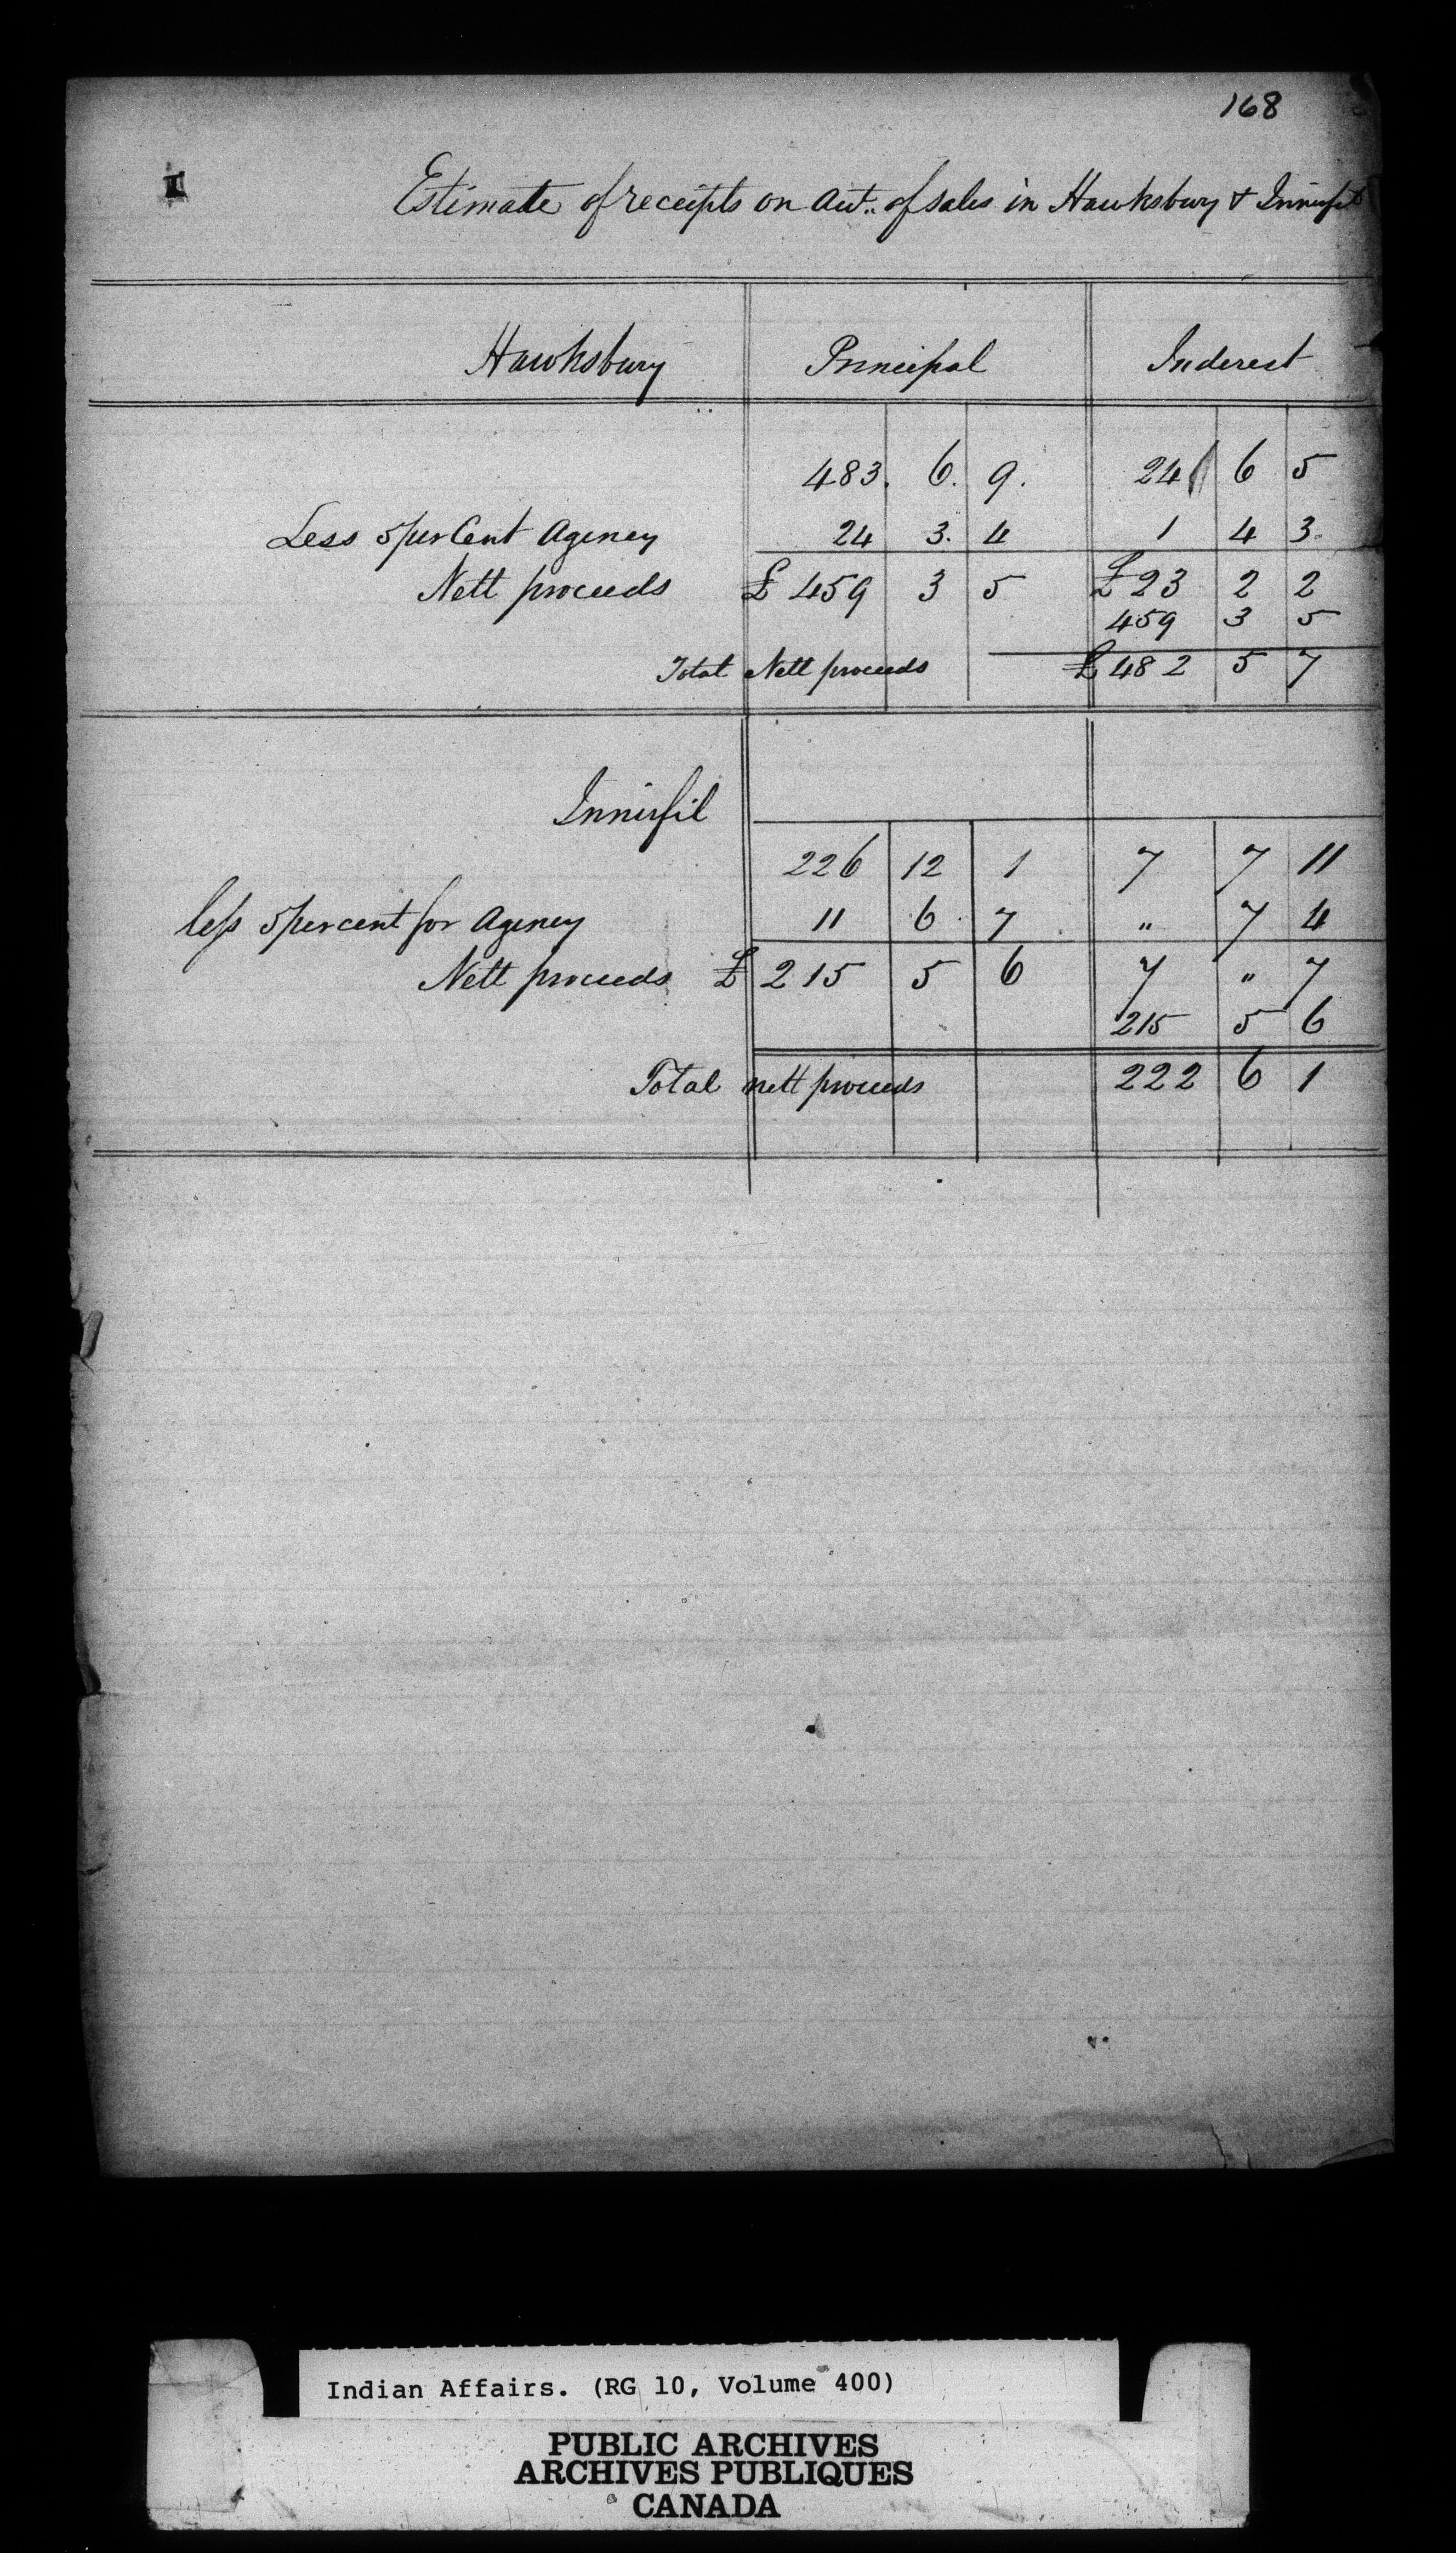 168
I
Estimate of receipts on Act.. of sales in Hawksbury & Innisfil
Hawksbury Principal Inderest
483. 6. 9. 24 6 5
Less 5 per Cent Agency 24 3. 4 1 4 3
Nett proceeds £ 459 3 5 £ 23 2 2
459 3 5
Total Nett proceeds £ 482 5 7
Innisfil
226 12 1 7 7 11
less 5 per cent for Agency 11 6 7 " 7 4
Nett proceeds £ 215 5 6 7 " 7
215 5 6
Total nett proceeds 222 6 1
Indian Affairs. (RG 10, Volume 400)
PUBLIC ARCHIVES
ARCHIVES PUBLIQUES
CANADA